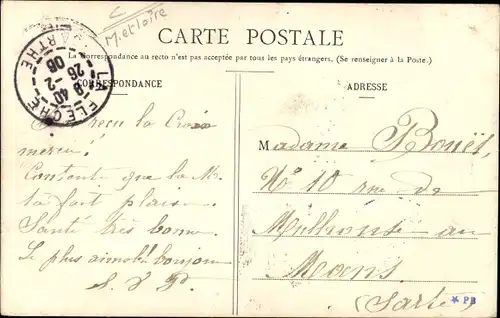 M. et loire
CARTE POSTALE
La Correspondance au recto n'est pas acceptée par tous les pays étrangers. (Se renseigner à la Poste.)
CORRESPONDANCE
ADRESSE
LA FLECHE
SARTHE
8 40
26 - 2
06
reçu la Croix
merci!
Contente que la M.
ta fait plaisir
Santé très bonne.
Le plus aimable bonjour
S. V. P.
Madame Bouët,
N° 10 rue de
Mulhouse au
Mans.
(Sarthe)
PB